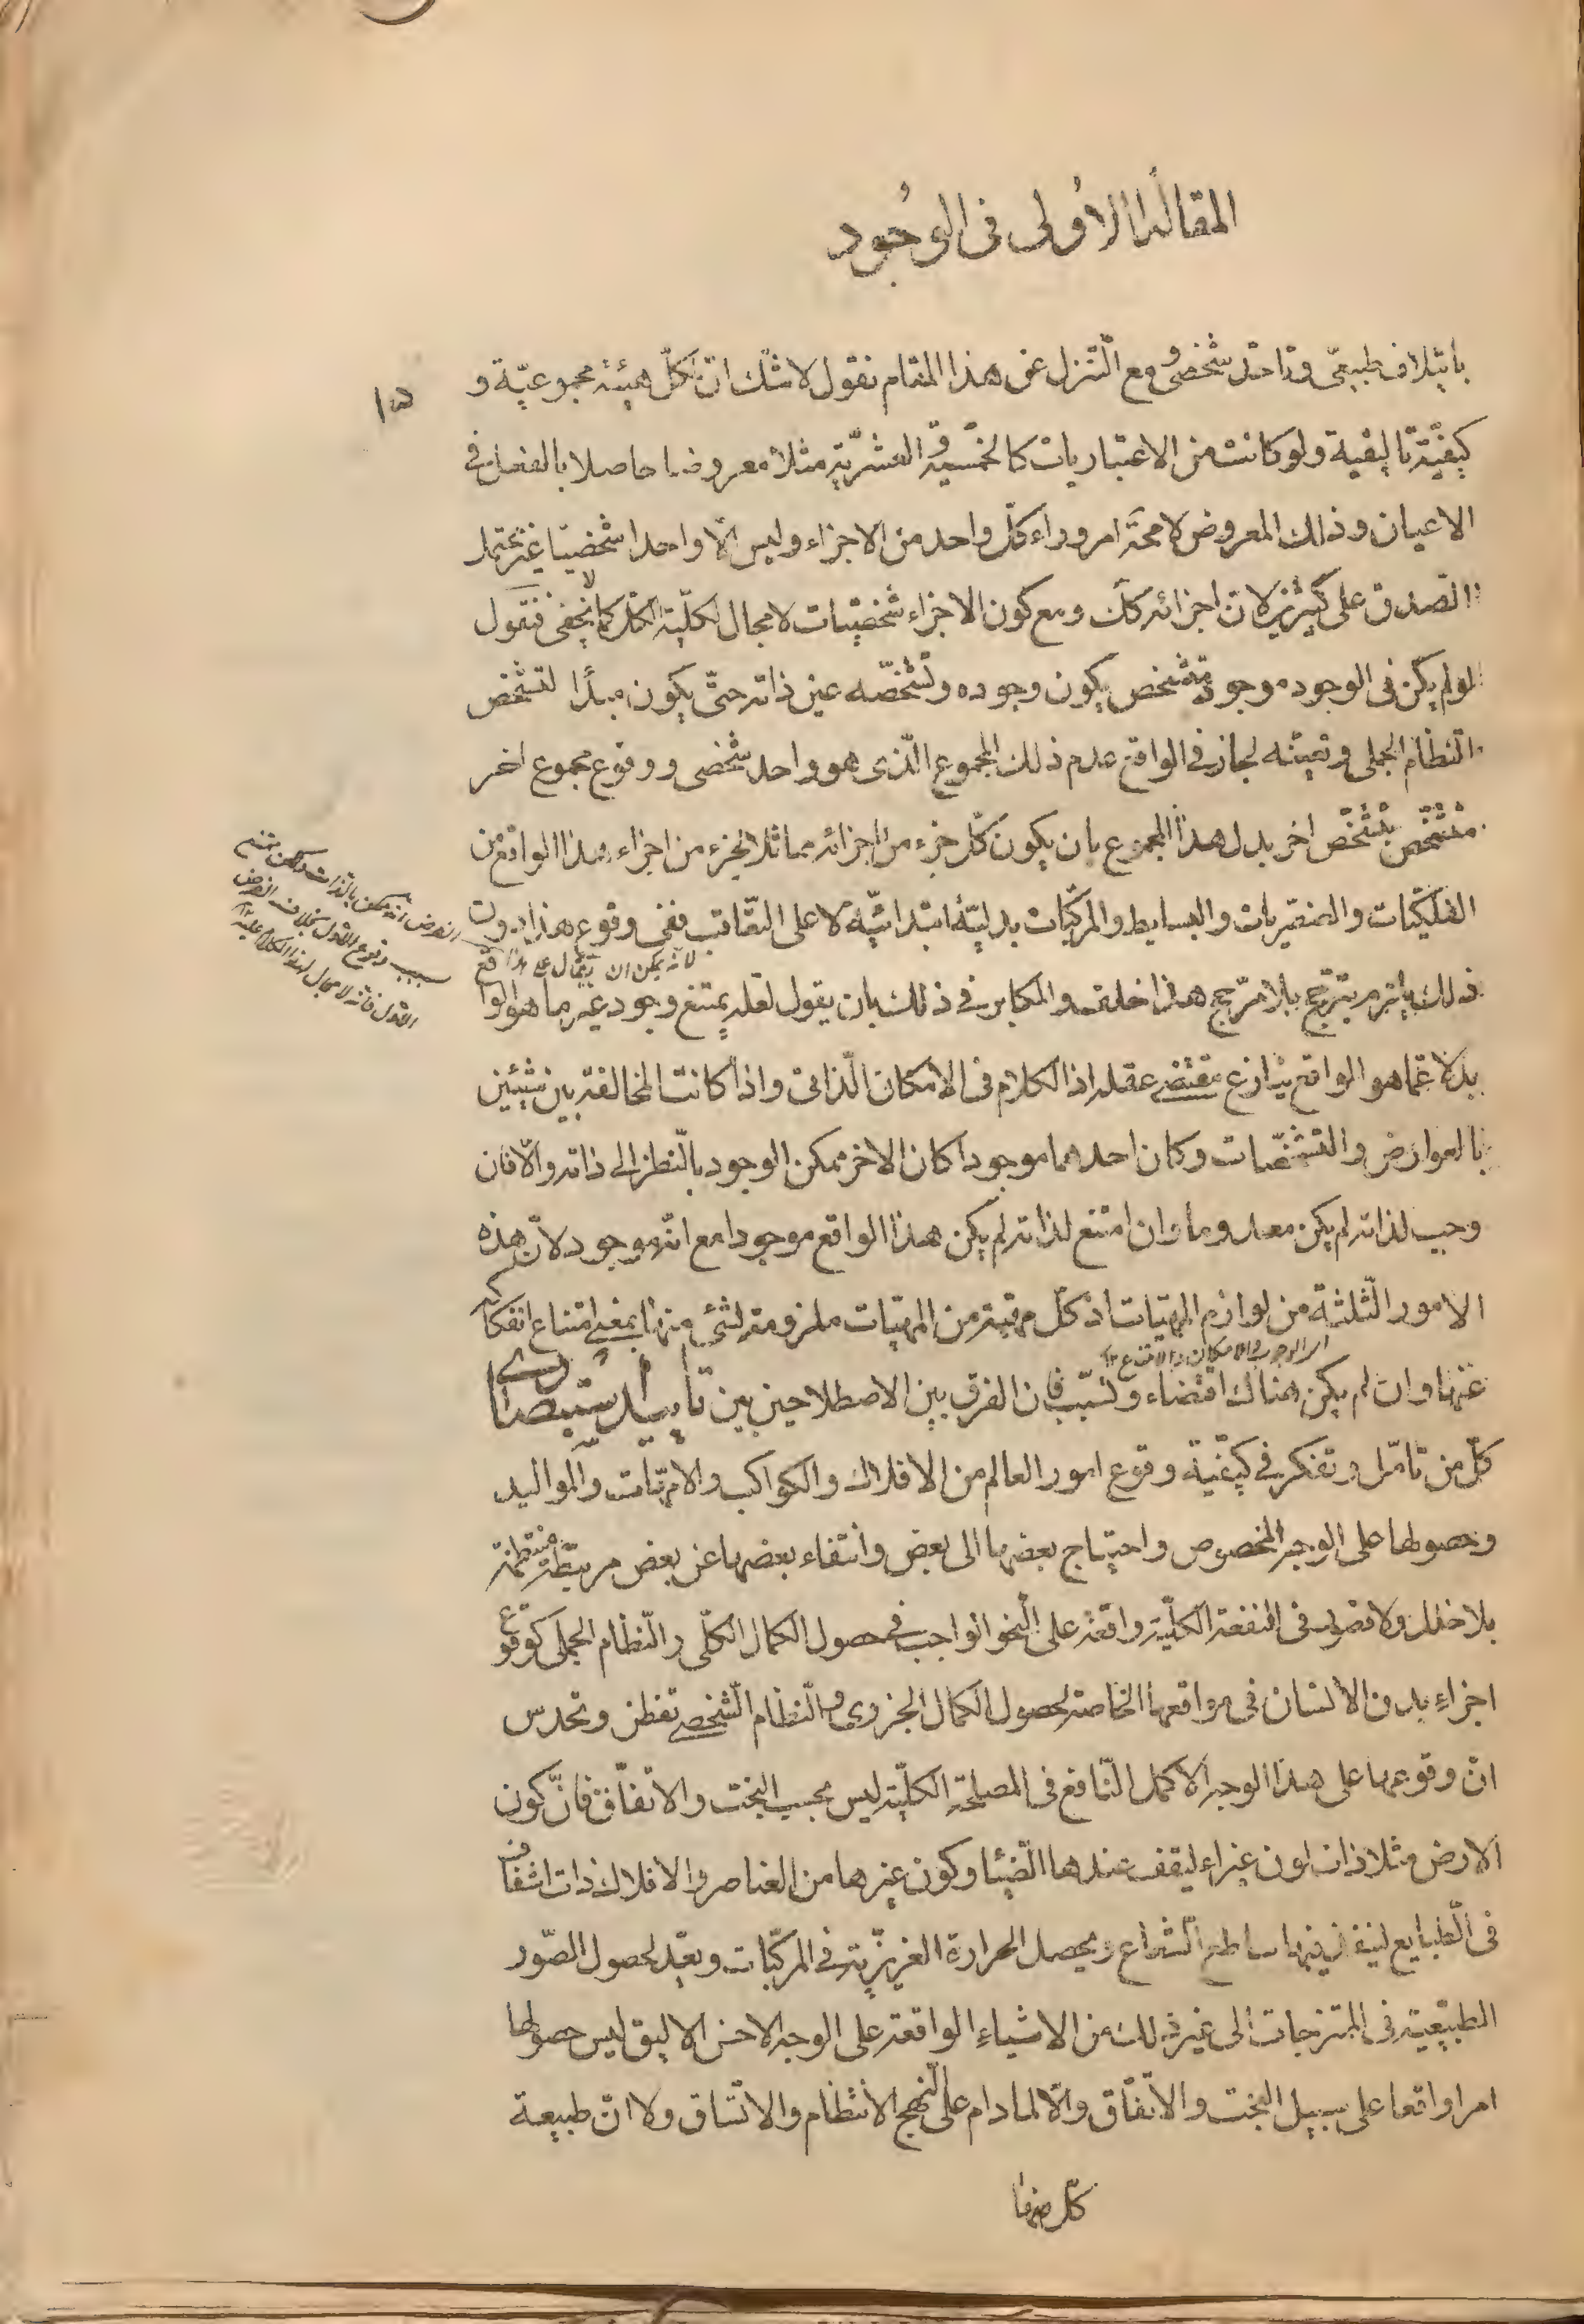 المقالة الاولى فى الوجود
١٥
بايتلاف طبيعىّ وتاحّد شخصىّ ومع التّنزل عن هذا المقام نقول لا شك انّ لكلّ هيئة مجموعيّة و
كيفيّة تاليفية ولو كانت من الاعتباريات كالخمسية والعشريّة مثلا معروضا حاصلا بالفعل فى
الاعيان وذلك المعروض لا محة امر وراء كلّ واحد من الاجزاء وليس الّا واحدا شخصيّا غير محتمل
الصدق على كثيرين لان اجزائه كك ومع كون الاجزاء شخصيّات لا مجال لكلّية الكل كما لا يخفى فنقول
لو لم يكن فى الوجود موجود متشخص يكون وجوده وتشخّصه عين ذاته حتّى يكون مبدًا لتشخص
النظام الجملى وتعيّنه لجاز فى الواقع عدم ذلك المجموع الّذى هو واحد شخصى ووقوع مجموع اخر
متشخّص بتشخّص اخر بدل هذا المجموع بان يكون كلّ جزء من اجزائه مماثلا لجزء من اجزاء هذا الواقع من
الفلكيّات والعنصريات والبسايط والمركّبات بدليّة ابتدائيّة لا على التّعاقب ففى وقوع هذا بدون
لانه يمكن ان يقال على هذا
ذلك يلزم ترجّح بلا مرّجح هذا خلف والمكابر فى ذلك بان يقول لعله يمتنع وجود غير ما هو الواقع
الفرض انه ممكن بالذات ولكن يمتنع
بسبب وقوع الاول بخلاف الفرض
الاول فانه لا مجال لهذا الكلام عليه ١٢
بدلا عمّا هو الواقع ينازع مقتضى عقله اذ الكلام فى الامكان الّذاتى واذا كانت المخالفة بين شيئين
بالعوارض والتشخّصات وكان احدهما موجودا كان الاخر ممكن الوجود بالّنظر الى ذاته والّا فان
وجب لذاته لم يكن معدوما وان امتنع لذاته لم يكن هذا الواقع موجودا مع انّه موجود لانّ هذه
الامور الّثلثة من لوازم المهيّات اذ كلّ مهيّة من المهيّات ملزومة لشئ منها بمعنى امتناع انفكاكه
اى الوجوب والامكان والامتناع ١٢
عنها وان لم يكن هناك اقتضاء وتسبّب فان الفرق بين الاصطلاحين بين تاييد استبصارى
كلّ من تامّل وتفكر فى كيفيّة وقوع امور العالم من الافلاك والكواكب والامّهات والمواليد
وحصولها على الوجه المخصوص واحتياج بعضها الى بعض وانتفاء بعضها عن بعض مرتبطة منتظمة
بلا خلل ولا قصور فى المنفعة الكلّية واقعة على النّحو الواجب فى حصول الكمال الكلّى والنّظام الجملى كوقوع
اجزاء بدن الانسان فى مواقعها الخاصة لحصول الكمال الجزوى والنظام الّشخصى تفطن وتحدس
انّ وقوعها على هذا الوجه الاكمل النّافع فى المصلحة الكلّية ليس بحسب البخت والاتفّاق فانّ كون
الارض مثلا ذات لون غبراء ليقف عندها الضّياء وكون غيرها من العناصر والافلاك ذات اشفاف
فى الّطبايع لينفذ فيها ساطع الشّعاع ويحصل الحرارة الغريزيّة فى المركّبات ويعدّ لحصول الصّور
الطبيّعية فى الممتزجات الى غير ذلك من الاشياء الواقعة على الوجه الاحسن الاليق ليس حصولها
امرا واقعا على سبيل البخت والاتّفاق والّا لما دام على النّهج الانتظام والاتّساق ولا انّ طبيعة
كلّ منها